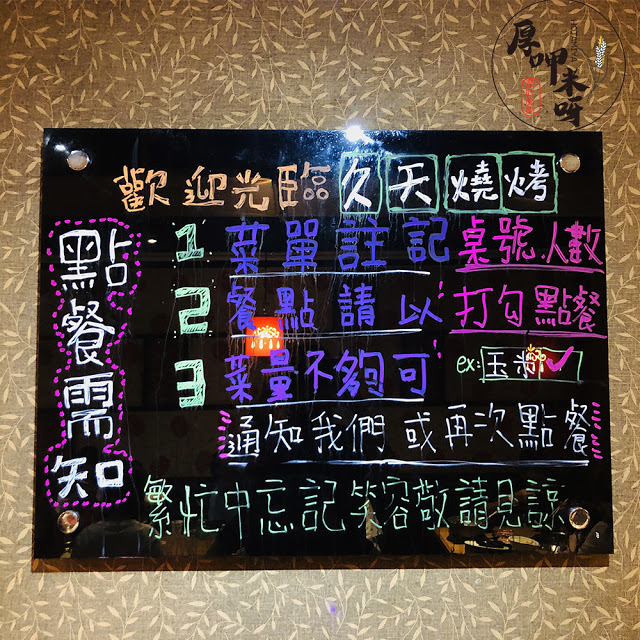 厚呷米呀
歡迎光臨久天燒烤
點餐需知
1 菜單註記桌號.人數
2 餐點請以打勾點餐
3 菜量不夠可 ex:玉米✓
通知我們或再次點餐
繁忙中忘記笑容敬請見諒